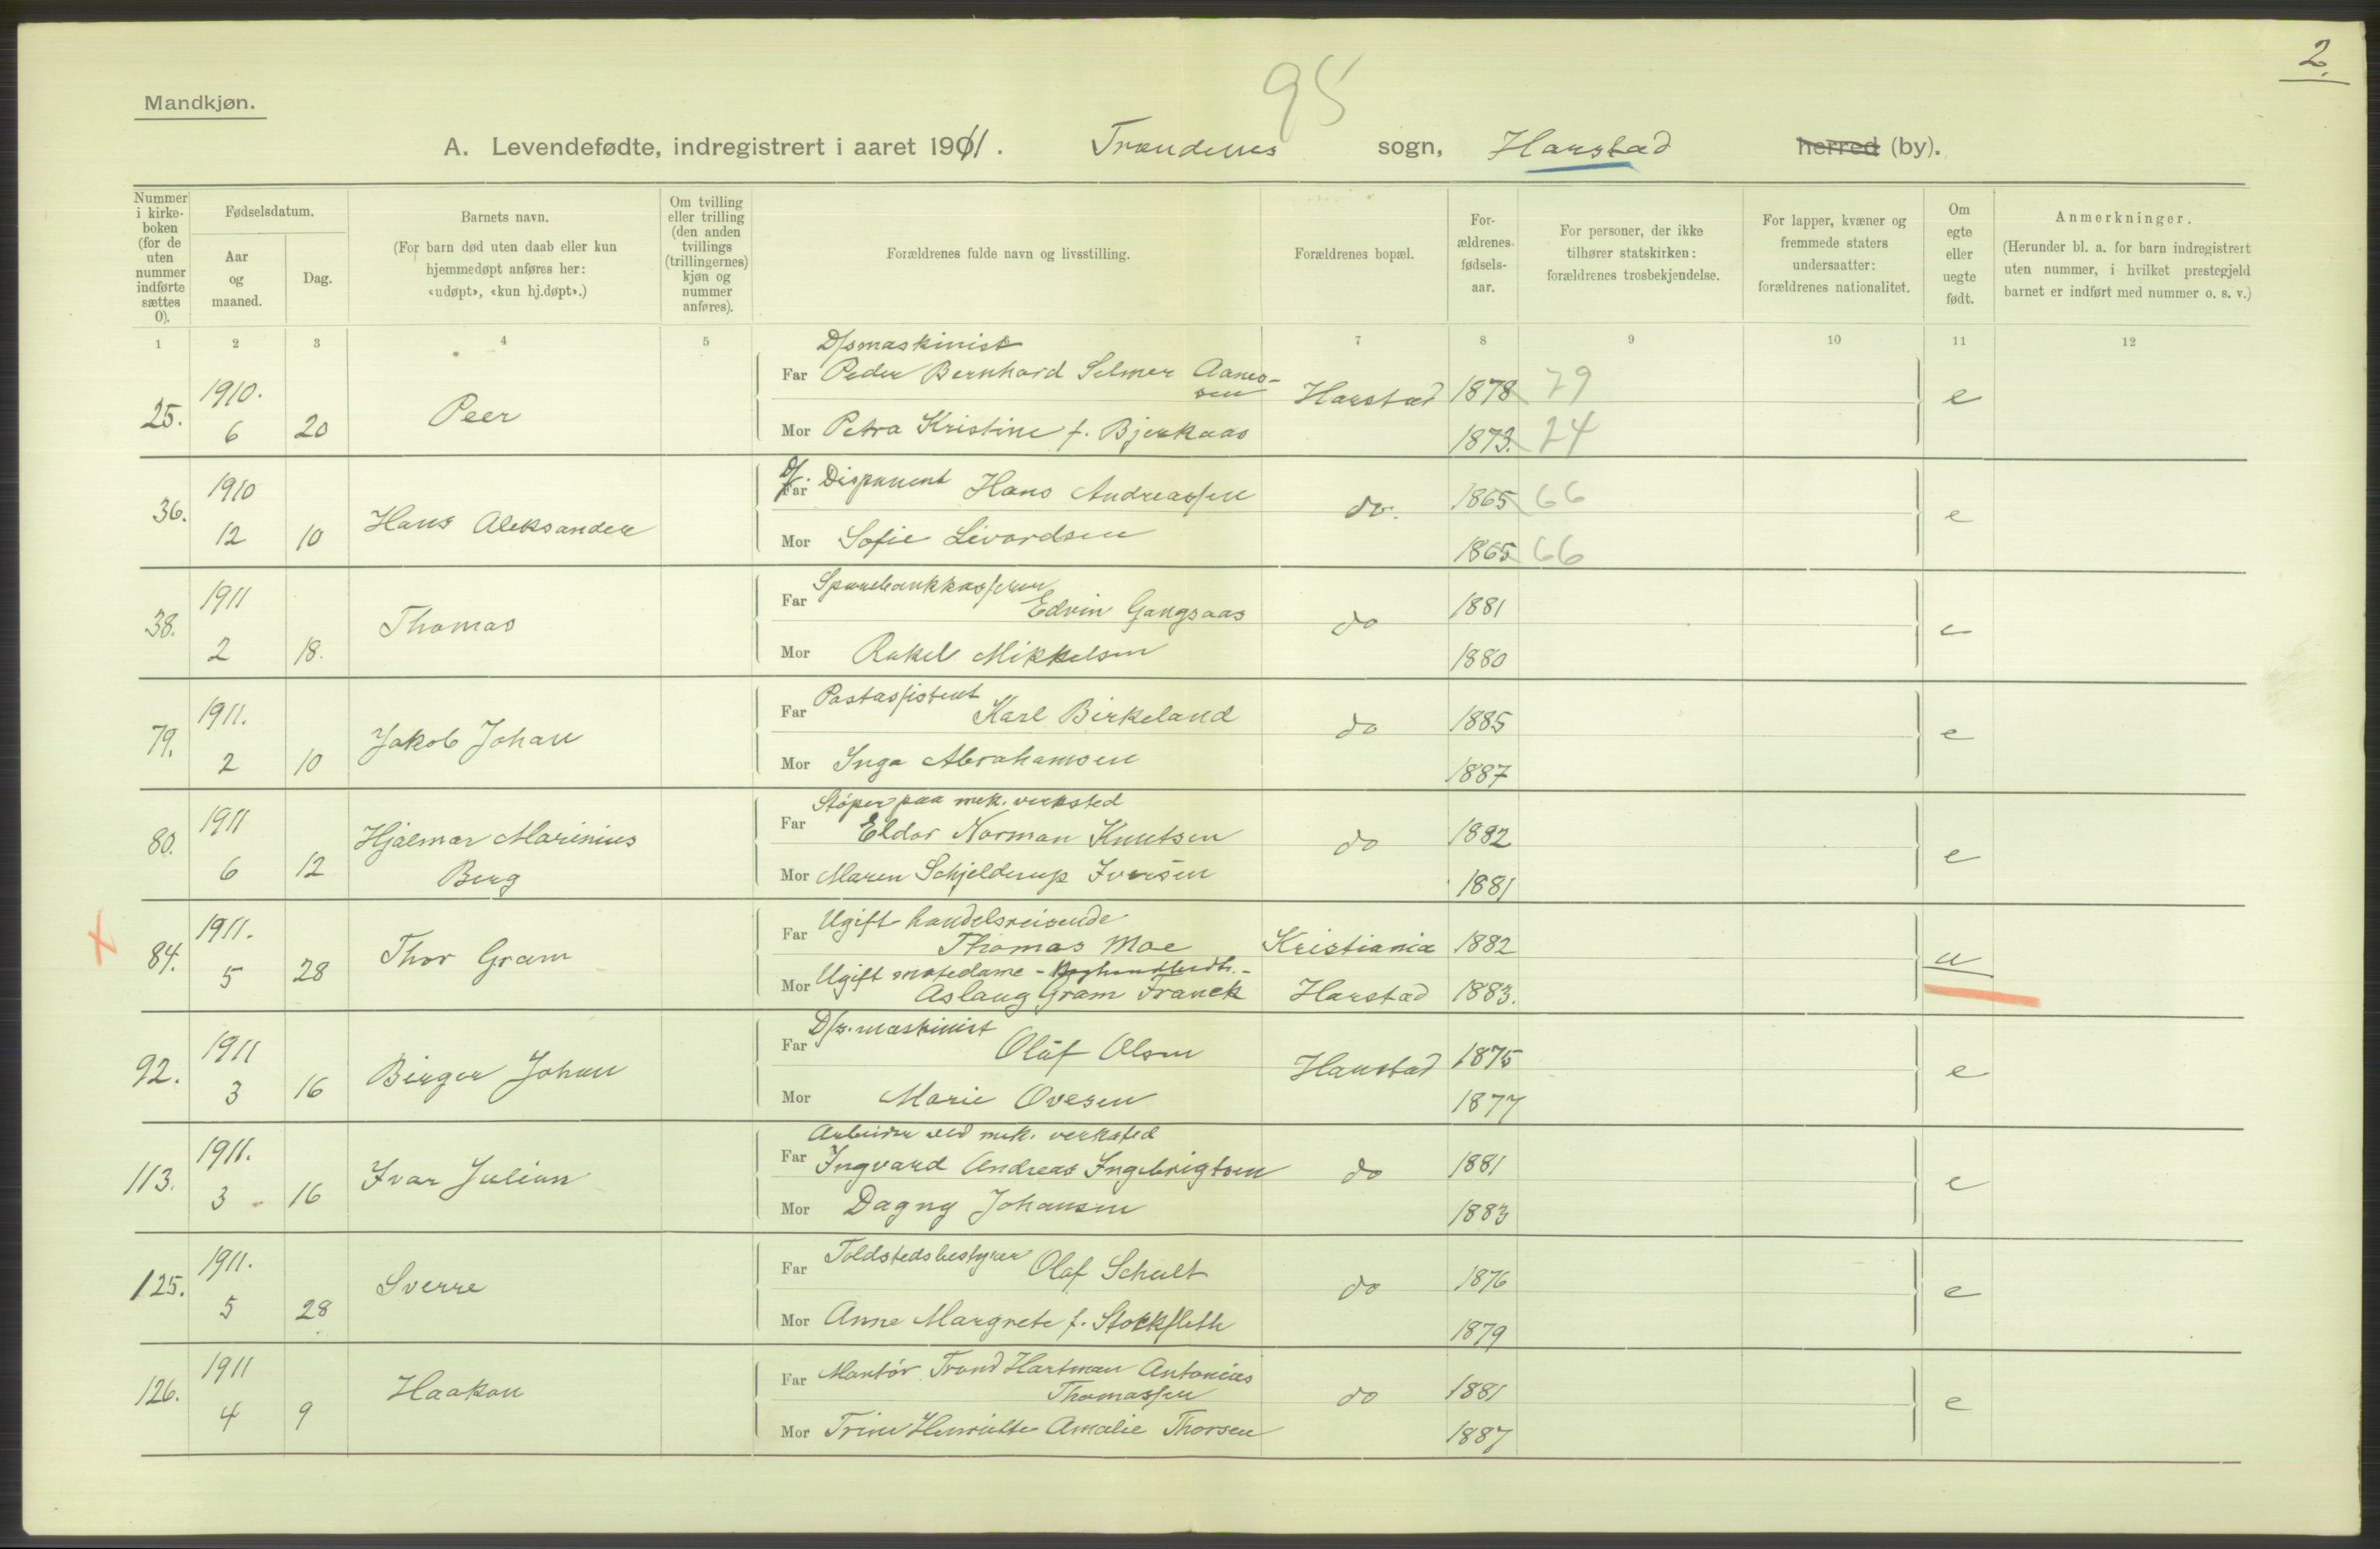 2.
95
Mandkjøn.
A. Levendefødte, indregistrert i aaret 1911. Trondenes sogn, Harstad herred (by).
Nummer i kirkeboken (for de uten nummer indførte sættes 0).
Fødselsdatum.
Aar og maaned.
Dag.
Barnets navn.
(For barn død uten daab eller kun hjemmedøpt anføres her: «udøpt», «kun hj.døpt».)
Om tvilling eller trilling (den anden tvillings (trillingernes) kjøn og nummer anføres).
Forældrenes fulde navn og livsstilling.
Forældrenes bopæl.
Forældrenes fødselsaar.
For personer, der ikke tilhører statskirken: forældrenes trosbekjendelse.
For lapper, kvæner og fremmede staters undersaatter: forældrenes nationalitet.
Om egte eller uegte født.
Anmerkninger.
(Herunder bl. a. for barn indregistrert uten nummer, i hvilket prestegjeld barnet er indført med nummer o. s. v.)
1 2 3 4 5 7 8 9 10 11 12
D/smaskinist
25. 1910. 6 20 Peer Far Peder Bernhard Selmer Aanes-
sen Harstad 1878 79 e
Mor Petra Kristine f. Bjerkaas 1873. 74
36. 1910 12 10 Hans Aleksander Far Disponent Hans Andreassen do. 1865 66 e
Mor Sofie Livordsen 1865 66
38. 1911 2 18. Thomas Far Sparebankkasserer
Edvin Gangsaas do 1881 e
Mor Rakel Mikkelsen 1880
79. 1911. 2 10 Jakob Johan Far Postassistent
Karl Birkeland do 1885 e
Mor Inga Abrahamsen 1887
80. 1911 6 12 Hjalmar Marinius
Berg
Støper paa mek. verksted
Far Eldor Norman Knutsen do 1882 e
Mor Maren Schjelderup Iversen 1881
84. 1911. 5 28 Thor Gram Far Ugift handelsreisende
Thomas Moe Kristiania 1882 u
Mor Ugift motedame -
Aslaug Gram Franck Harstad 1883.
92. 1911 3 16 Birger Johan D/s. maskinist
Far Olaf Olsen Harstad 1875 e
Mor Marie Ovesen 1877
113. 1911. 3 16 Ivar Julian Arbeider ved mek. verksted
Far Ingvard Andreas Ingebrigtsen do 1881 e
Mor Dagny Johansen 1883
125. 1911. 5 28 Sverre Far Toldstedsbestyrer Olaf Schult do 1876 e
Mor Anne Margrete f. Stockfleth 1879
126. 1911 4 9 Haakon Far Montör Trond Hartman Antonius
Thomassen do 1881 e
Mor Trine Henriette Amalie Thorsen 1887